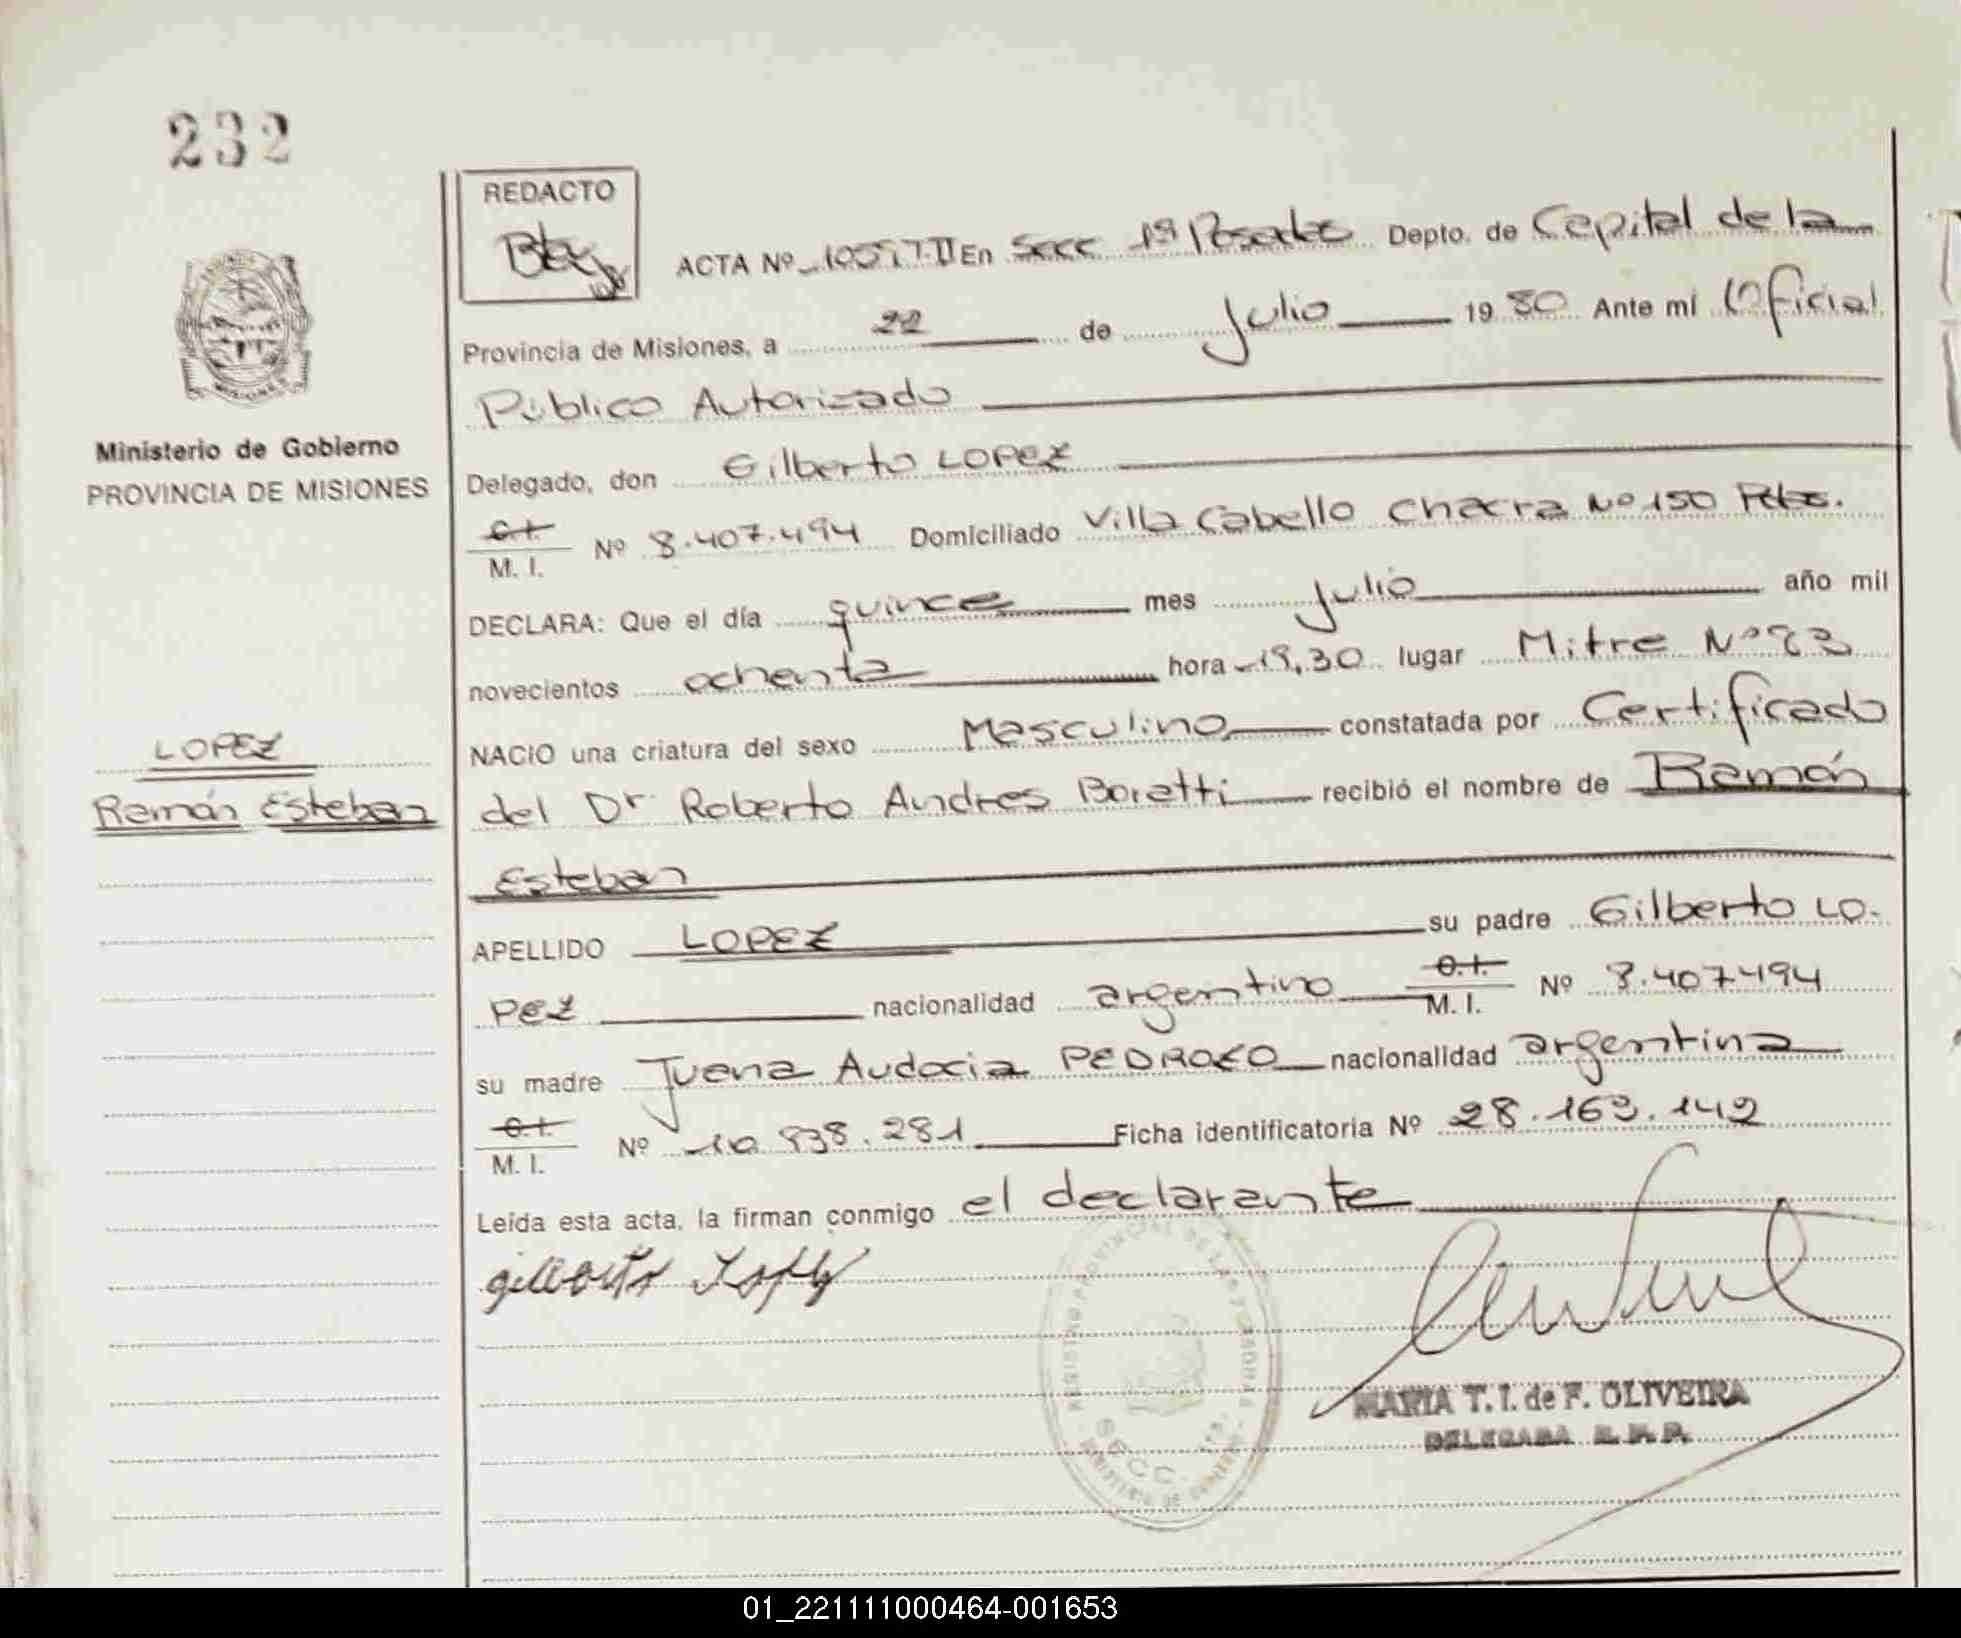 232
REDACTO
ACTA Nº 10057-II En Secc 1ª Posadas Depto. de Capital de la
Provincia de Misiones, a 22 de Julio 1980 Ante mí Oficial
Público Autorizado
Ministerio de Gobierno
PROVINCIA DE MISIONES
Delegado, don Gilberto LOPEZ
C.I.
M. I. Nº 8.407.494 Domiciliado Villa Cabello Chacra Nº 150 Pdas.
DECLARA: Que el día quince mes Julio año mil
novecientos ochenta hora 19,30 lugar Mitre Nº 83
LOPEZ
Ramón Esteban
NACIO una criatura del sexo Masculino constatada por Certificado
del Dr Roberto Andres Boretti recibió el nombre de Ramón
Esteban
APELLIDO LOPEZ su padre Gilberto LO-
PEZ nacionalidad argentino C.I.
M. I. Nº 8.407494
su madre Juana Audocia PEDROZO nacionalidad argentina
C.I.
M. I. Nº 10.838.281 Ficha identificatoria Nº 28.163.142
Leída esta acta, la firman conmigo el declarante
gilberto Lopez
REGISTRO PROVINCIAL DE LAS PERSONAS
SECC. 1ª
MINISTERIO DE GOBIERNO
MARIA T. I. de F. OLIVEIRA
DELEGADA R. P. P.
01_221111000464-001653